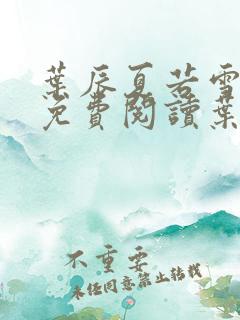 葉辰夏若雪
免費閱讀葉
不重要
未經同意禁止轉載